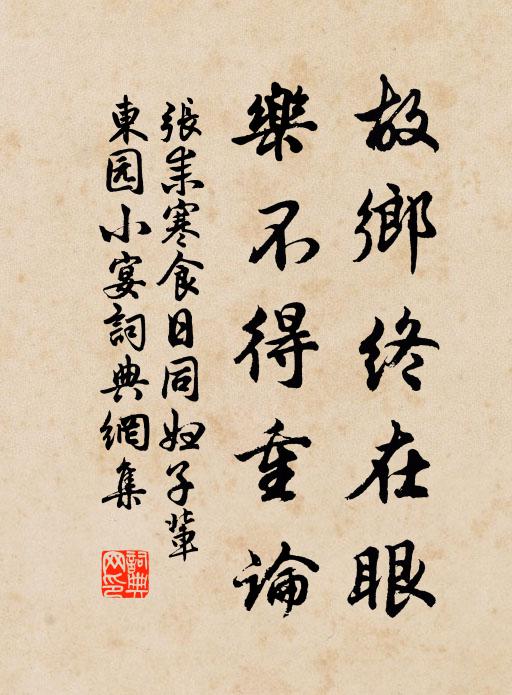 故鄉終在眼
樂不得重論
張耒寒食日同婦子輩
東园小宴詞典網集
詞典网印